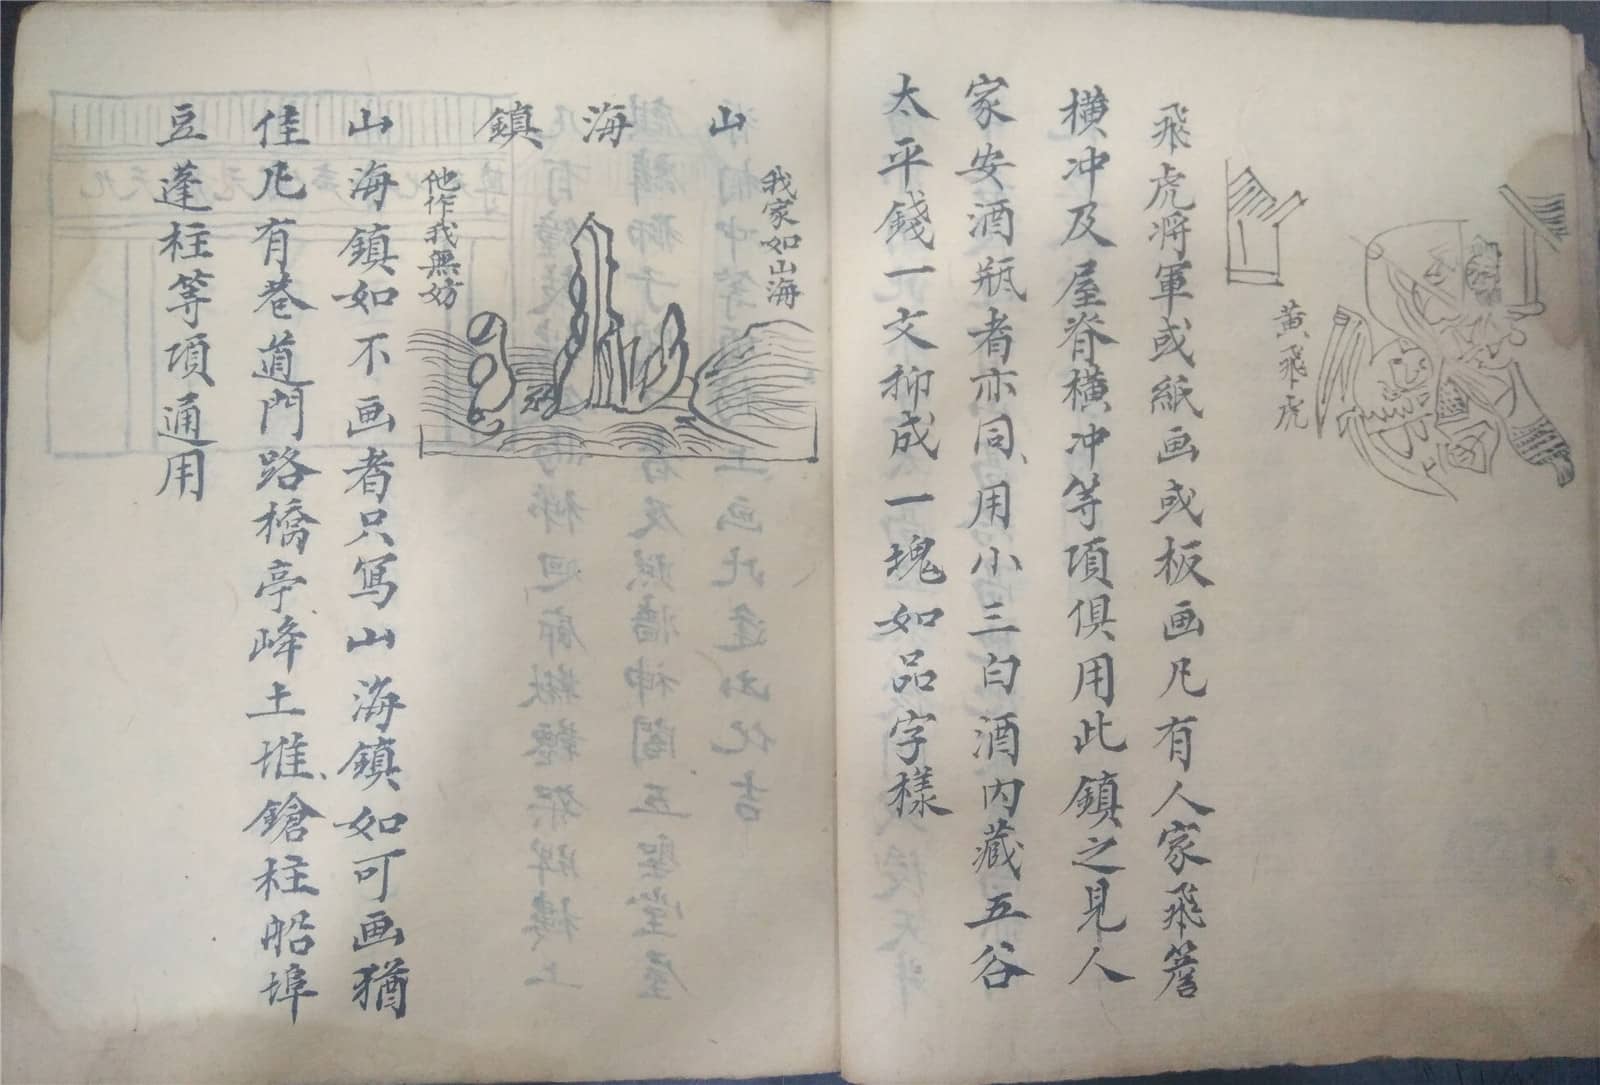 黄飛虎
飛虎将軍或紙画或板画凡有人家飛簷
横冲及屋脊横冲等項俱用此鎮之見人
家安酒瓶者亦同用小三白酒内藏五谷
太平錢一元文抑成一塊如品字樣
山海鎮
我家如山海
他作我無妨
山海鎮如不画者只写山海鎮如可画猶
佳凡有巷道門路橋亭峰土堆鎗柱船埠
豆蓬柱等項通用